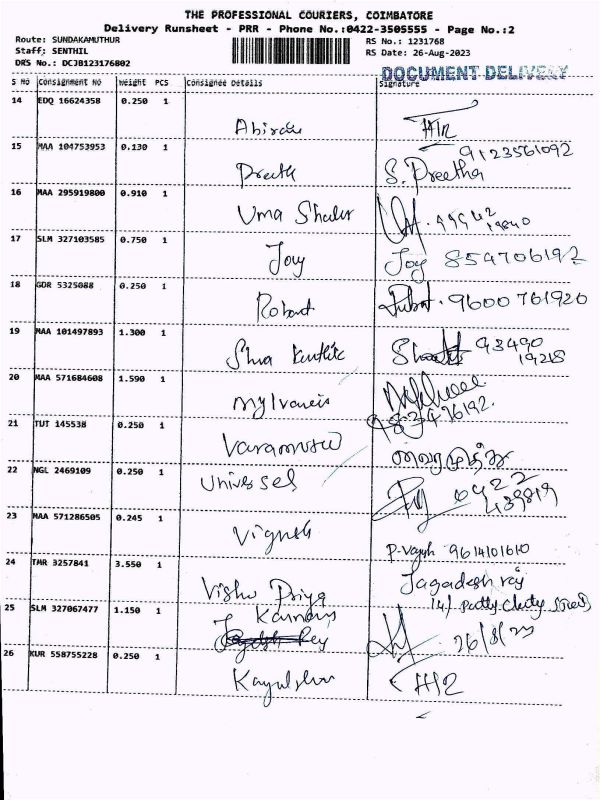 THE PROFESSIONAL COURIERS, COIMBATORE
Delivery Runsheet - PRR - Phone No.:0422-3505555 - Page No.:2
Route: SUNDAKAMUTHUR
RS No.: 1231768
Staff: SENTHIL
RS Date: 26-Aug-2023
DRS No.: DCJB123176802
DOCUMENT DELIVERY
S No Consignment No Weight PCS Consignee Details Signature
14 EDQ 16624358 0.250 1
15 MAA 104753953 0.130 1 9123561092
Preeth S. Preetha
16 MAA 295919800 0.910 1
Uma 99942
19840
17 SLM 327103585 0.750 1
Joy Joy 854706192
18 GDR 5325088 0.250 1
Robert 9600761920
19 MAA 101497893 1.300 1
93490
19218
20 MAA 571684608 1.590 1
21 TUT 145538 0.250 1
22 NGL 2469109 0.250 1
Universel 0422
439819
23 MAA 571286505 0.245 1
Vignesh 9614101610
24 TMR 3257841 3.550 1
Vishu Priya Jagadesh raj
25 SLM 327067477 1.150 1
26/8/23
26 KUR 558755228 0.250 1